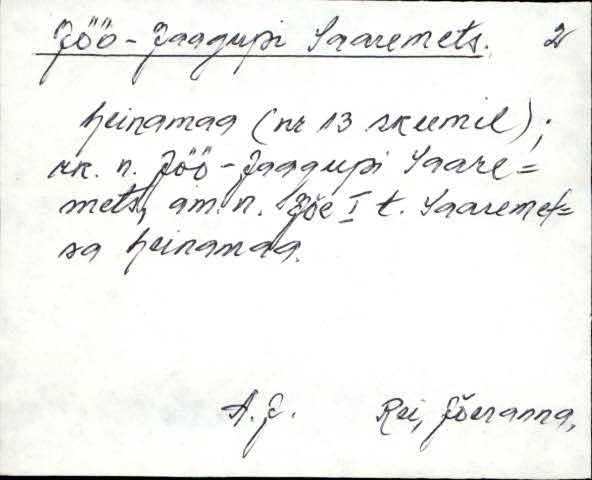 Jöö-Jaagupi Saaremets. 2
heinamaa (nr 13 skeemil);
rk. n. Jöö-Jaagupi Saare=
mets, am. n. Jõe I t. Saaremet=
sa heinamaa.
A. J. Rei, Jõeranna,